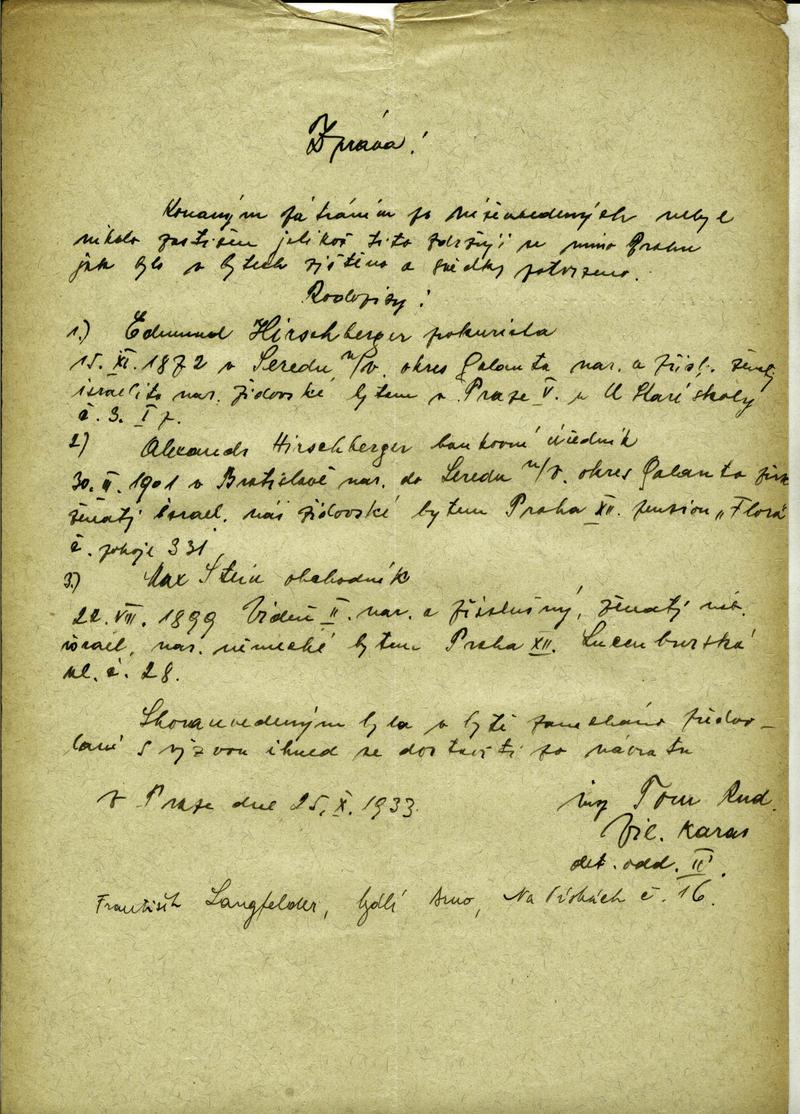 Zpráva!
Konaným pátráním po níže uvedených nebyl
nikdo zastižen jelikož tito zdržují se mimo Prahu
jak bylo v bytech zjištěno a svědky potvrzeno.
Rodopisy!
1.) Edmund Hirschberger prokurista
15. XI. 1872 v Seredu n/V. okres Galanta nar. a přísl. ženatý
israelita nar. židovské bytem v Praze V. u Staré školy
č. 3. I p.
2) Alexandr Hirschberger bankovní úředník
30. II. 1901 v Bratislavě nar. do Seredu n/V. okres Galanta přísl.
ženatý israel. nár. židovské bytem Praha XII. pension „Flora
č. pokoje 331
3.) Max Stein obchodník
22. VII. 1899 Vídeň II. nar. a příslušný, ženatý náb.
israel, nar. německé bytem Praha XII. Lucemburská
ul. č. 28.
Shora uvedeným byla v bytě zanechána předvo-
lání s výzvou ihned se dostaviti po návratu
V Praze dne 25. X. 1933.
Tour Rud.
Vil. Karas
det. odd. II.
František Langfelder, bydlí Brno, Na č. 16.